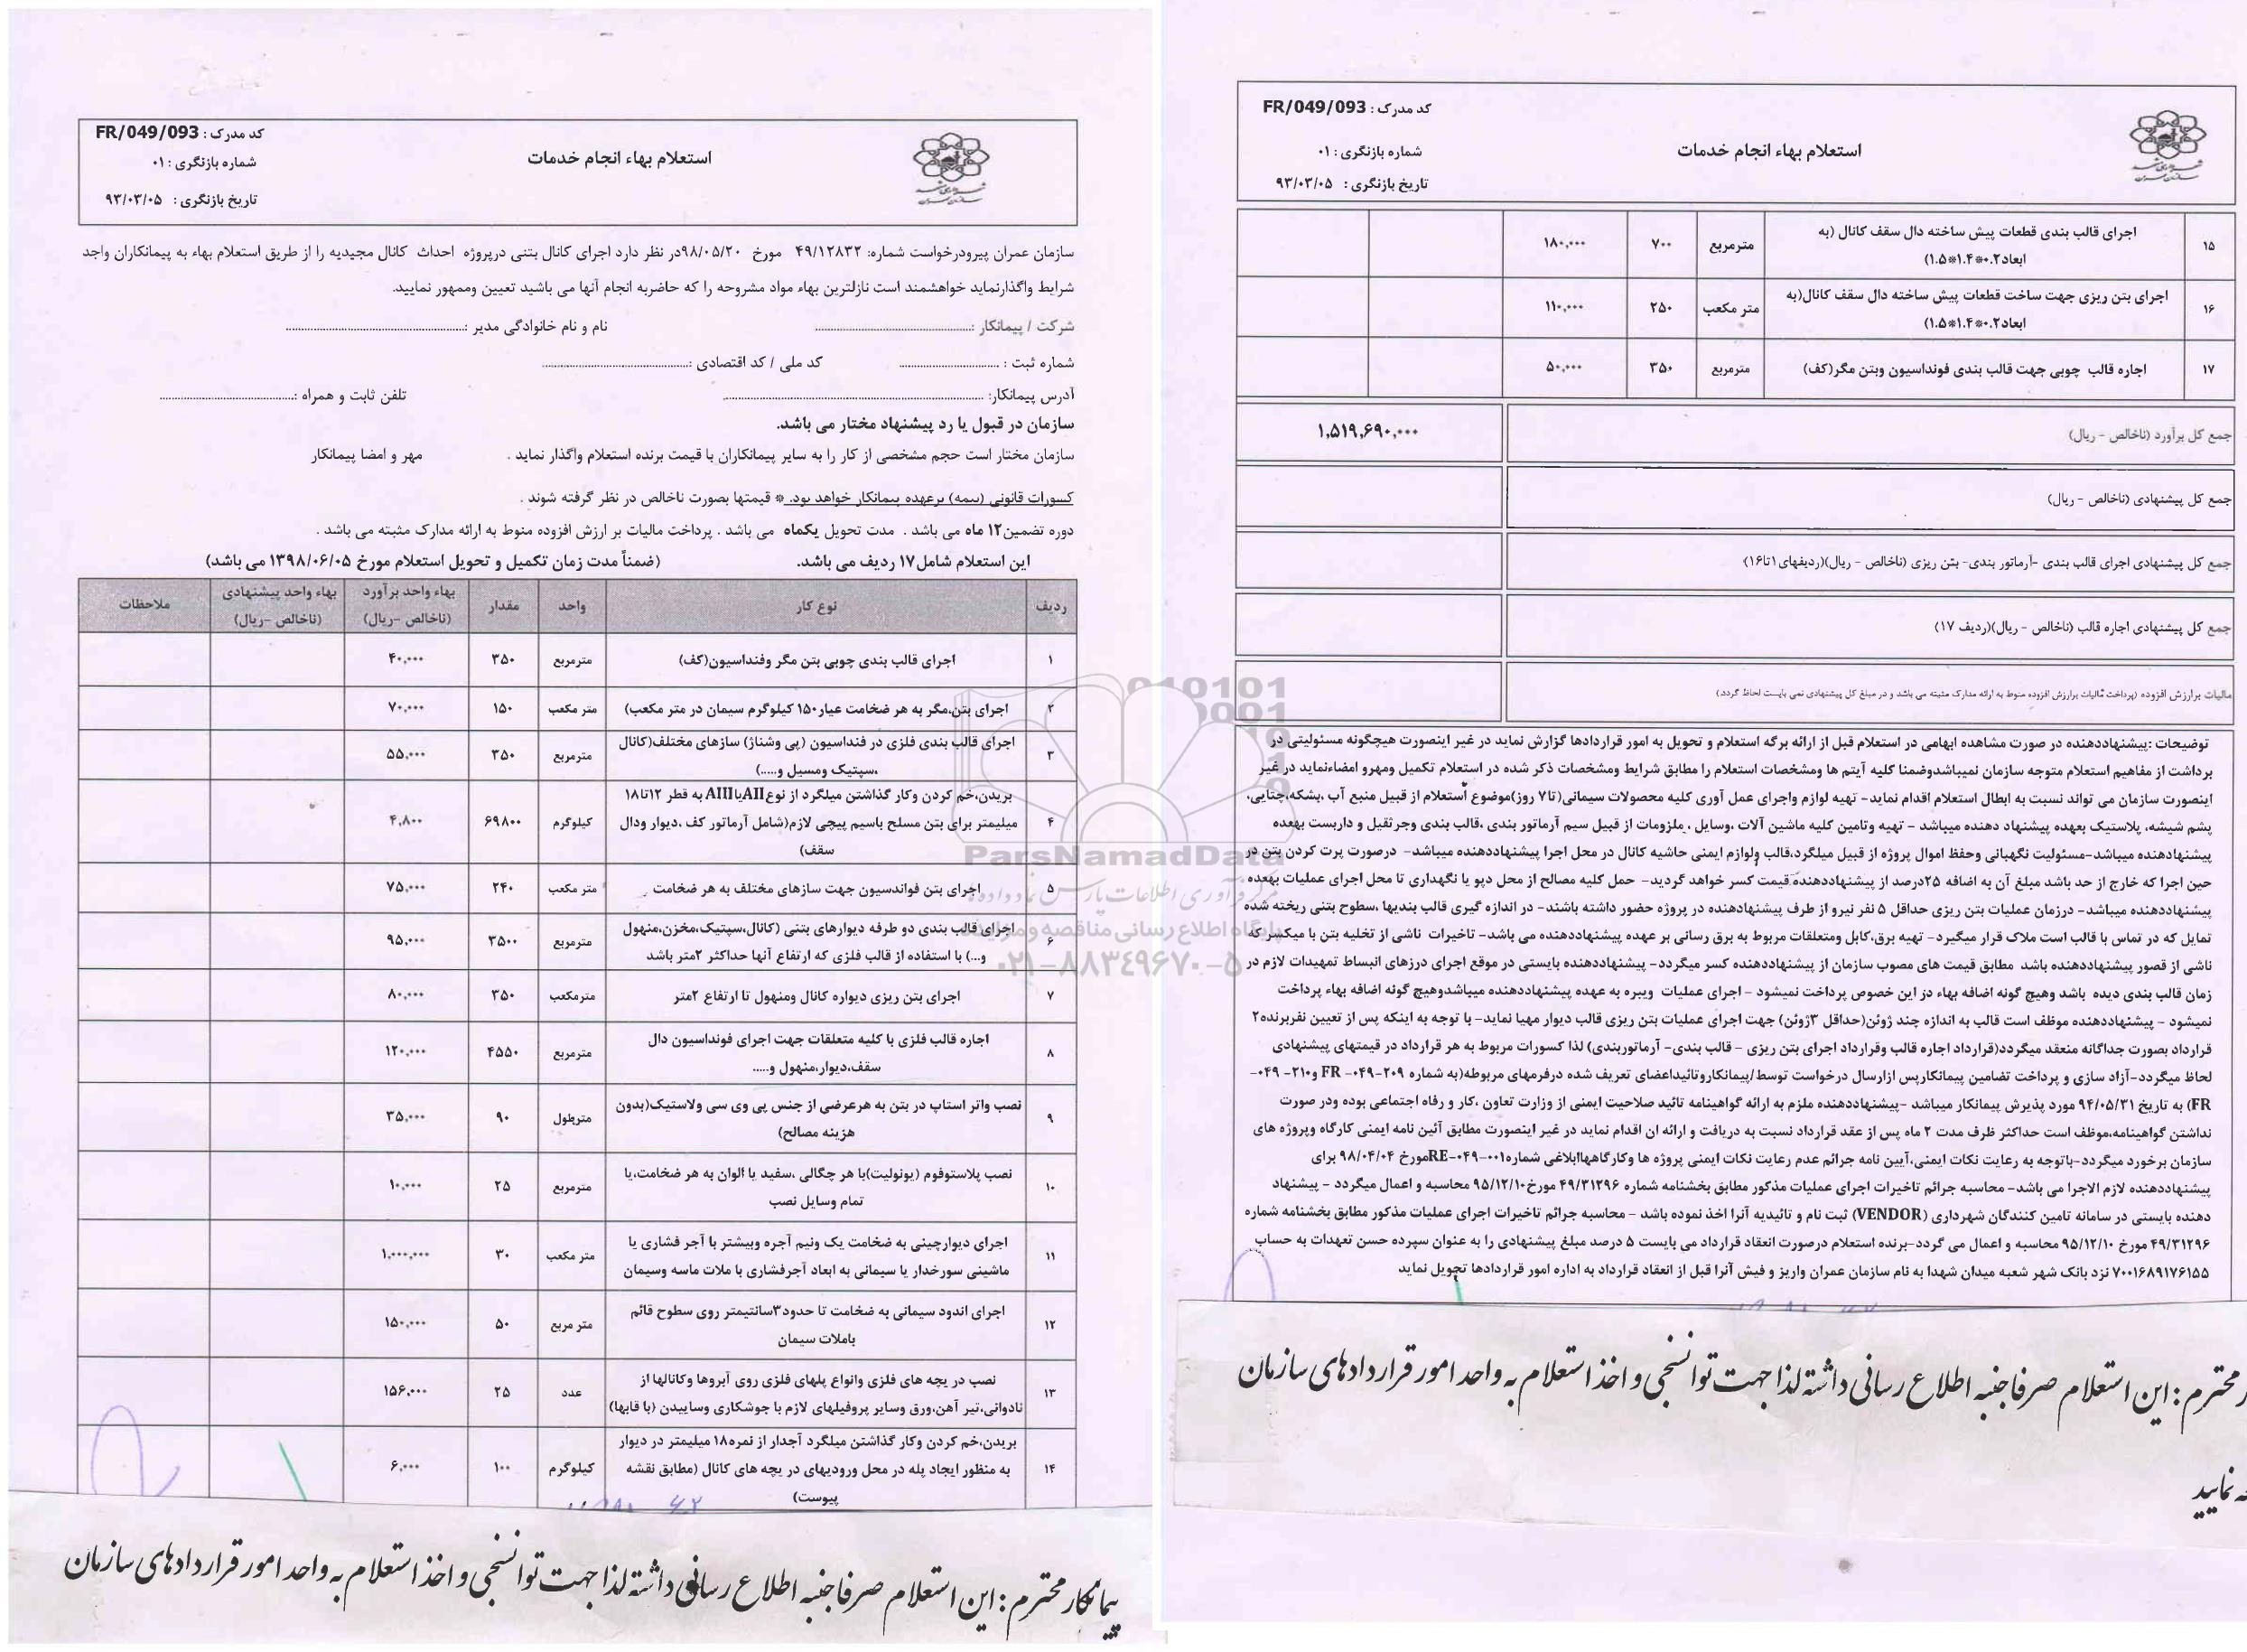 کد مدرک : FR/049/093
استعلام بهاء انجام خدمات
شماره بازنگری : ۰۱
تاریخ بازنگری : ۹۳/۰۳/۰۵
سازمان عمران پیرودرخواست شماره: ۴۹/۱۲۸۳۲ مورخ ۹۸/۰۵/۲۰در نظر دارد اجرای کانال بتنی درپروژه احداث کانال مجیدیه را از طریق استعلام بهاء به پیمانکاران واجد
شرایط واگذارنماید خواهشمند است نازلترین بهاء مواد مشروحه را که حاضربه انجام آنها می باشید تعیین وممهور نمایید.
شرکت / پیمانکار :.................... نام و نام خانوادگی مدیر :....................
شماره ثبت : .................... کد ملی / کد اقتصادی :....................
آدرس پیمانکار: .................... تلفن ثابت و همراه :....................
سازمان در قبول یا رد پیشنهاد مختار می باشد.
سازمان مختار است حجم مشخصی از کار را به سایر پیمانکاران با قیمت برنده استعلام واگذار نماید . مهر و امضا پیمانکار
کسورات قانونی (بیمه) برعهده پیمانکار خواهد بود. * قیمتها بصورت ناخالص در نظر گرفته شوند .
دوره تضمین۱۲ ماه می باشد . مدت تحویل یکماه می باشد . پرداخت مالیات بر ارزش افزوده منوط به ارائه مدارک مثبته می باشد .
این استعلام شامل۱۷ ردیف می باشد. (ضمناً مدت زمان تکمیل و تحویل استعلام مورخ ۱۳۹۸/۰۶/۰۵ می باشد)
ردیف نوع کار واحد مقدار بهاء واحد برآورد (ناخالص -ریال) بهاء واحد پیشنهادی (ناخالص -ریال) ملاحظات
۱ اجرای قالب بندی چوبی بتن مگر وفنداسیون(کف) مترمربع ۳۵۰ ۴۰,۰۰۰
۲ اجرای بتن،مگر به هر ضخامت عیار۱۵۰ کیلوگرم سیمان در متر مکعب) متر مکعب ۱۵۰ ۷۰,۰۰۰
۳ اجرای قالب بندی فلزی در فنداسیون (پی وشناژ) سازهای مختلف(کانال
،سپتیک ومسیل و.....) مترمربع ۳۵۰ ۵۵,۰۰۰
۴ بریدن،خم کردن وکار گذاشتن میلگرد از نوعAIIیاAIII به قطر ۱۲تا۱۸
میلیمتر برای بتن مسلح باسیم پیچی لازم(شامل آرماتور کف ،دیوار ودال
سقف) کیلوگرم ۶۹۸۰۰ ۴,۸۰۰
۵ اجرای بتن فواندسیون جهت سازهای مختلف به هر ضخامت متر مکعب ۲۴۰ ۷۵,۰۰۰
۶ اجرای قالب بندی دو طرفه دیوارهای بتنی (کانال،سپتیک،مخزن،منهول
و...) با استفاده از قالب فلزی که ارتفاع آنها حداکثر ۲متر باشد مترمربع ۳۵۰۰ ۹۵,۰۰۰
۷ اجرای بتن ریزی دیواره کانال ومنهول تا ارتفاع ۲متر مترمکعب ۳۵۰ ۸۰,۰۰۰
۸ اجاره قالب فلزی با کلیه متعلقات جهت اجرای فونداسیون دال
سقف،دیوار،منهول و..... مترمربع ۴۵۵۰ ۱۲۰,۰۰۰
۹ نصب واتر استاپ در بتن به هرعرضی از جنس پی وی سی ولاستیک(بدون
هزینه مصالح) مترطول ۹۰ ۳۵,۰۰۰
۱۰ نصب پلاستوفوم (یونولیت)با هر چگالی ،سفید یا الوان به هر ضخامت،با
تمام وسایل نصب مترمربع ۲۵ ۱۰,۰۰۰
۱۱ اجرای دیوارچینی به ضخامت یک ونیم آجره وبیشتر با آجر فشاری یا
ماشینی سورخدار یا سیمانی به ابعاد آجرفشاری با ملات ماسه وسیمان متر مکعب ۳۰ ۱,۰۰۰,۰۰۰
۱۲ اجرای اندود سیمانی به ضخامت تا حدود۳سانتیمتر روی سطوح قائم
باملات سیمان متر مربع ۵۰ ۱۵۰,۰۰۰
۱۳ نصب در یچه های فلزی وانواع پلهای فلزی روی آبروها وکانالها از
نادوانی،تیر آهن،ورق وسایر پروفیلهای لازم با جوشکاری وساییدن (با قابها) عدد ۲۵ ۱۵۶,۰۰۰
۱۴ بریدن،خم کردن وکار گذاشتن میلگرد آجدار از نمره۱۸ میلیمتر در دیوار
به منظور ایجاد پله در محل ورودیهای در یچه های کانال (مطابق نقشه
پیوست) کیلوگرم ۱۰۰ ۶,۰۰۰
پیمانکار محترم : این استعلام صرفا جنبه اطلاع رسانی داشته لذا جهت توانسنجی و اخذ استعلام به واحد امور قراردادهای سازمان
کد مدرک : FR/049/093
استعلام بهاء انجام خدمات
شماره بازنگری : ۰۱
تاریخ بازنگری : ۹۳/۰۳/۰۵
۱۵ اجرای قالب بندی قطعات پیش ساخته دال سقف کانال (به
ابعاد۰.۲*۱.۴*۱.۵) مترمربع ۷۰۰ ۱۸۰,۰۰۰
۱۶ اجرای بتن ریزی جهت ساخت قطعات پیش ساخته دال سقف کانال(به
ابعاد۰.۲*۱.۴*۱.۵) متر مکعب ۲۵۰ ۱۱۰,۰۰۰
۱۷ اجاره قالب چوبی جهت قالب بندی فونداسیون وبتن مگر(کف) مترمربع ۳۵۰ ۵۰,۰۰۰
جمع کل برآورد (ناخالص - ریال) ۱,۵۱۹,۶۹۰,۰۰۰
جمع کل پیشنهادی (ناخالص - ریال)
جمع کل پیشنهادی اجرای قالب بندی -آرماتور بندی- بتن ریزی (ناخالص - ریال)(ردیفهای۱تا۱۶)
جمع کل پیشنهادی اجاره قالب (ناخالص - ریال)(ردیف ۱۷)
مالیات برارزش افزوده (پرداخت مالیات برارزش افزوده منوط به ارائه مدارک مثبته می باشد و در مبلغ کل پیشنهادی نمی بایست لحاظ گردد.)
توضیحات :پیشنهاددهنده در صورت مشاهده ابهامی در استعلام قبل از ارائه برگه استعلام و تحویل به امور قراردادها گزارش نماید در غیر اینصورت هیچگونه مسئولیتی در
برداشت از مفاهیم استعلام متوجه سازمان نمیباشدوضمنا کلیه آیتم ها ومشخصات استعلام را مطابق شرایط ومشخصات ذکر شده در استعلام تکمیل ومهرو امضاءنماید در غیر
اینصورت سازمان می تواند نسبت به ابطال استعلام اقدام نماید- تهیه لوازم واجرای عمل آوری کلیه محصولات سیمانی(تا۷ روز)موضوع استعلام از قبیل منبع آب ،پشکه،چتایی،
پشم شیشه، پلاستیک بعهده پیشنهاد دهنده میباشد - تهیه وتامین کلیه ماشین آلات ،وسایل ، ملزومات از قبیل سیم آرماتور بندی ،قالب بندی وجرثقیل و داربست بهعده
پیشنهادهنده میباشد-مسئولیت نگهبانی وحفظ اموال پروژه از قبیل میلگرد،قالب ولوازم ایمنی حاشیه کانال در محل اجرا پیشنهاددهنده میباشد- درصورت پرت کردن بتن در
حین اجرا که خارج از حد باشد مبلغ آن به اضافه ۲۵درصد از پیشنهاددهنده قیمت کسر خواهد گردید- حمل کلیه مصالح از محل دپو یا نگهداری تا محل اجرای عملیات بهعده
پیشنهاددهنده میباشد- درزمان عملیات بتن ریزی حداقل ۵ نفر نیرو از طرف پیشنهادهنده در پروژه حضور داشته باشند- در اندازه گیری قالب بندیها ،سطوح بتنی ریخته شده
تمایل که در تماس با قالب است ملاک قرار میگیرد- تهیه برق،کابل ومتعلقات مربوط به برق رسانی بر عهده پیشنهاددهنده می باشد- تاخیرات ناشی از تخلیه بتن با میکسر که
ناشی از قصور پیشنهاددهنده باشد مطابق قیمت های مصوب سازمان از پیشنهاددهنده کسر میگردد- پیشنهاددهنده بایستی در موقع اجرای درزهای انبساط تمهیدات لازم در
زمان قالب بندی دیده باشد وهیچ گونه اضافه بهاء در این خصوص پرداخت نمیشود - اجرای عملیات ویبره به عهده پیشنهاددهنده میباشدوهیچ گونه اضافه بهاء پرداخت
نمیشود - پیشنهاددهنده موظف است قالب به اندازه چند ژوئن(حداقل ۳ژوئن) جهت اجرای عملیات بتن ریزی قالب دیوار مهیا نماید- با توجه به اینکه پس از تعیین نفربرنده۲
قرارداد بصورت جداگانه منعقد میگردد(قرارداد اجاره قالب وقرارداد اجرای بتن ریزی - قالب بندی- آرماتوربندی) لذا کسورات مربوط به هر قرارداد در قیمتهای پیشنهادی
لحاظ میگردد-آزاد سازی و پرداخت تضامین پیمانکارپس ازارسال درخواست توسط/پیمانکاروتائیداعضای تعریف شده درفرمهای مربوطه(به شماره ۲۰۹-۰۴۹- FR و۲۱۰- ۰۴۹-
FR) به تاریخ ۹۴/۰۵/۳۱ مورد پذیرش پیمانکار میباشد -پیشنهاددهنده ملزم به ارائه گواهینامه تائید صلاحیت ایمنی از وزارت تعاون ،کار و رفاه اجتماعی بوده ودر صورت
نداشتن گواهینامه،موظف است حداکثر ظرف مدت ۲ ماه پس از عقد قرارداد نسبت به دریافت و ارائه ان اقدام نماید در غیر اینصورت مطابق آئین نامه ایمنی کارگاه وپروژه های
سازمان برخورد میگردد-باتوجه به رعایت نکات ایمنی،آیین نامه جرائم عدم رعایت نکات ایمنی پروژه ها وکارگاههاابلاغی شماره۰۰۱-۰۴۹-REمورخ ۹۸/۰۴/۰۴ برای
پیشنهاددهنده لازم الاجرا می باشد- محاسبه جرائم تاخیرات اجرای عملیات مذکور مطابق بخشنامه شماره ۴۹/۳۱۲۹۶ مورخ۹۵/۱۲/۱۰ محاسبه و اعمال میگردد - پیشنهاد
دهنده بایستی در سامانه تامین کنندگان شهرداری (VENDOR) ثبت نام و تائیدیه آنرا اخذ نموده باشد - محاسبه جرائم تاخیرات اجرای عملیات مذکور مطابق بخشنامه شماره
۴۹/۳۱۲۹۶ مورخ ۹۵/۱۲/۱۰ محاسبه و اعمال می گردد-برنده استعلام درصورت انعقاد قرارداد می بایست ۵ درصد مبلغ پیشنهادی را به عنوان سپرده حسن تعهدات به حساب
۷۰۰۱۶۸۹۱۷۶۱۵۵ نزد بانک شهر شعبه میدان شهدا به نام سازمان عمران واریز و فیش آنرا قبل از انعقاد قرارداد به اداره امور قراردادها تحویل نماید
ر محترم : این استعلام صرفا جنبه اطلاع رسانی داشته لذا جهت توانسنجی و اخذ استعلام به واحد امور قراردادهای سازمان
ه نمایید
ParsNamadData
پایگاه اطلاع رسانی مناقصه و مزایده
۰۲۱-۸۸۳۴۹۶۷۰-۵